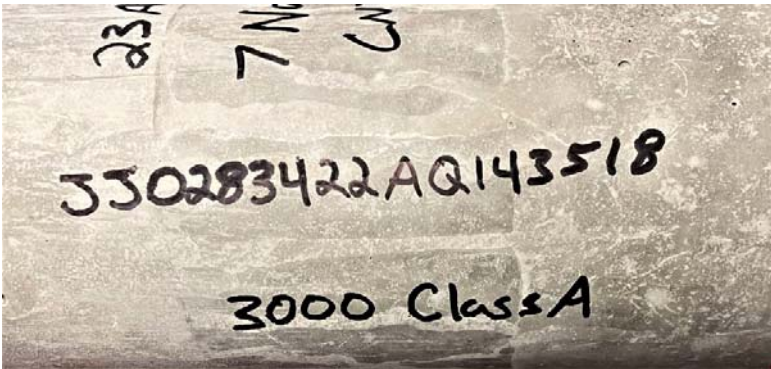 JJ0283422AQ143518
3000 Class A